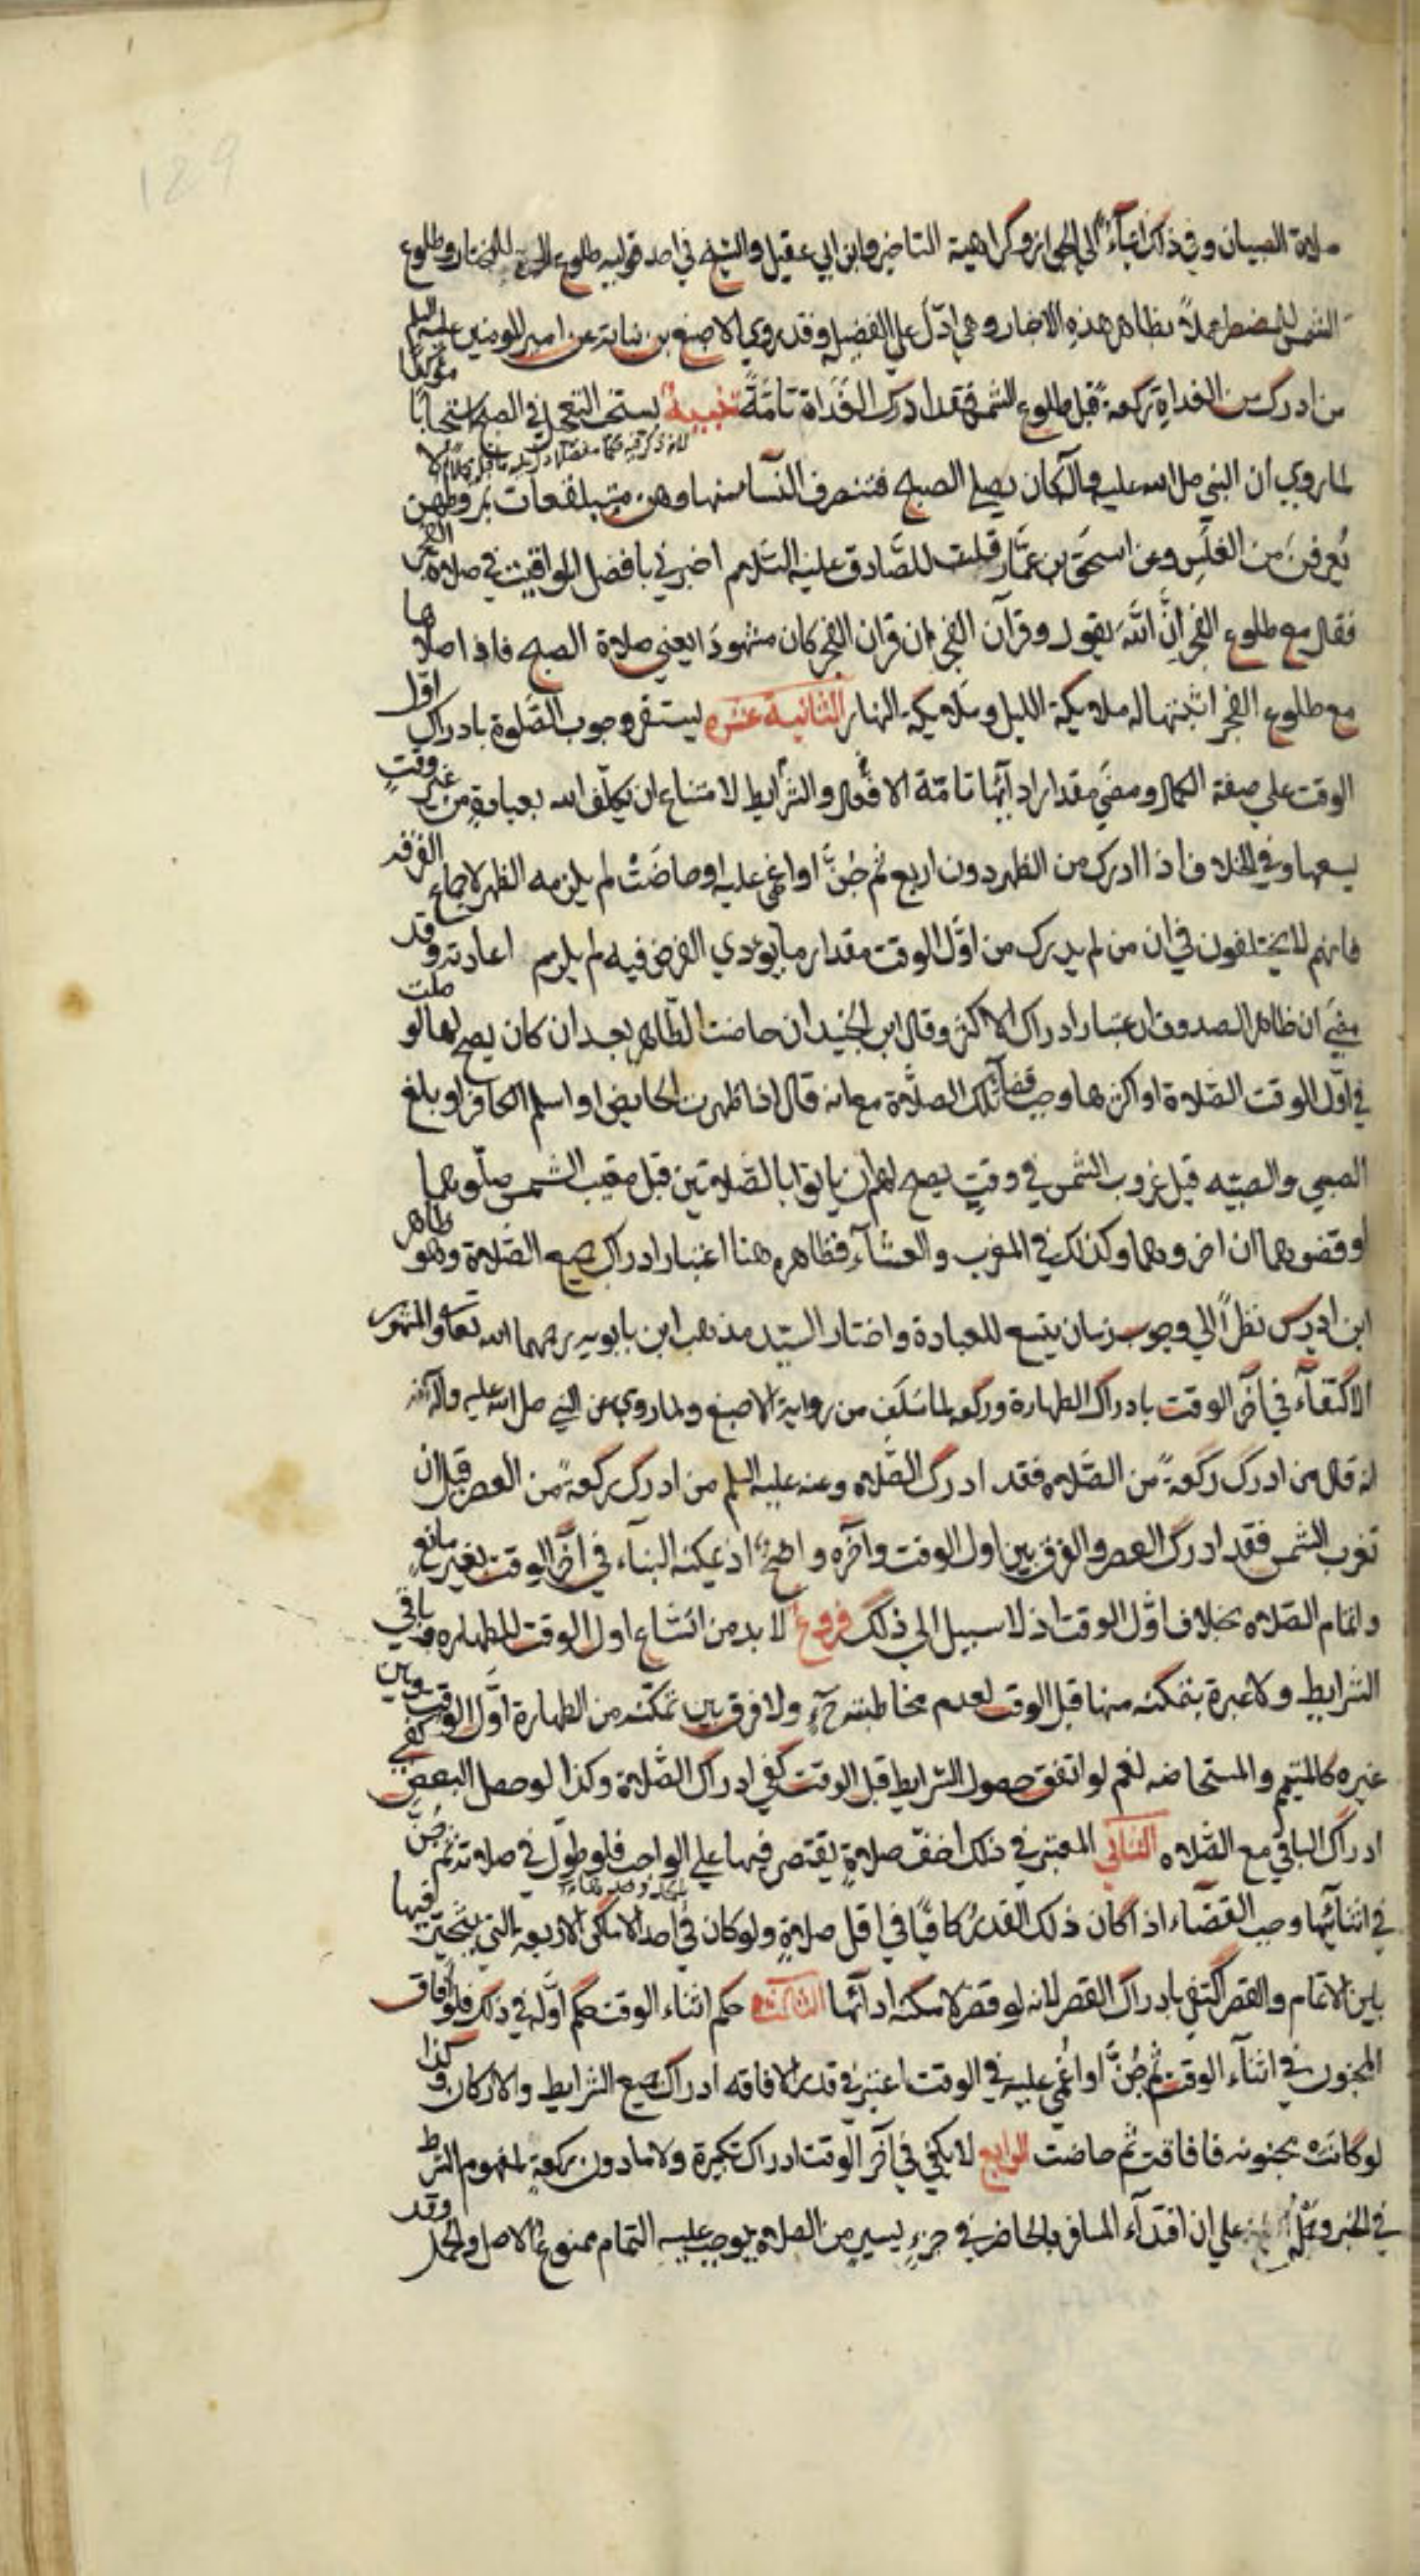 129
صلاة الصبيان وفي ذلك ايماء الى الجواز وكراهية التاخير وابن ابي عقيل والشيخ في احد قوليه طلوع للمختار وطلوع
الشمس للمضطر عملاً بظاهر هذه الاخبار وهي ادلّ على الفضيلة وقد روي الاصبغ بن نباته عن امير المومنين عليه السلم
من ادرك من الغداة ركعةً قبل طلوع الشمس فقد ادرك الغَداة تامّةً تنبيه يستحب التعجيل في الصبح استحباباً موكداً
لما روي ان النبي صلى الله عليه وآله كان يصلي الصبح فتنصرف النسآ منها وهن متلفعات بمروطهن لا
يُعرفن من الغلَس وعن اسحق بن عمّار قلت للصَّادق عليه السَّلام اخبرني بافضل المواقيت في صلاة الفجر
فقال مع طلوع الفجر انّ اللّه يقول وقرآن الفجر ان قران الفجر كان مشهودًا يعني صلاة الصبح فاذا صلاها
مع طلوع الفجر اثبتها له ملايكة الليل وملايكة النهار الثانية عشره يستقر وجوب الصَّلوة بادراك اوّل
الوقت على صفة الكمال ومضي مقدار ادآيُها تامّة الافعال والشرايط لامتناع ان يكلّف الله بعبادةٍ من غير وقتٍ
يسعها وفي الخلاف اذا ادرك من الظهر دون اربع ثم جُنّ او اغمي عليه او حاضَتْ لم يلزمه الظهر لاجماع الفرقة
فانهم لا يختلفون في ان من لم يدرك من اوّل الوقت مقدار ما يودي الفرض فيه لم يلزم اعادته وقد
مضي ان ظاهر الصدوق اعتبار ادراك الاكثر وقال ابن الجنيد ان حاضت الطّاهر بعد ان كان يصح لها لو صلت
في اوّل الوقت الصّلاة او اكثرها وجب قضآ تلك الصلاة مع انه قال اذا طهرت الحايض او اسلم الكافر او بلغ
الصبي والصبيّه قبل غروب الشمس في وقتٍ يصح لهم ان ياتوا بالصّلاتين قبل مغيب الشمس صلّوهما
او قضوهما ان اخروهما وكذلك في المغرب والعشآء فظاهره هنا اعتبار ادراك جميع الصّلاة وهو ظاهر
ابن ادريس نظراً الي وجوب زمان يتسع للعبادة واختار السيّد مذهب ابن بابويه رحمهما الله تعالى والمشهور
الاكتفآء في آخر الوقت بادراك الطهارة وركعه لما سَلَف من رواية الاصبغ ولما روي عن النبي صلى الله عليه وآله
انه قال من ادرك ركعةً من الصّلاه فقد ادرك الصّلاه وعنه عليه السلم من ادرك ركعةً من العصر قبل ان
تغرب الشمس فقد ادرك العصر والفرق بين اول الوقت وآخره واضح اذ يمكنه البنآء في آخر الوقت بغير مانع
واتمام الصّلاه بخلاف اوّل الوقت اذ لا سبيل الى ذلك فروع لا بد من اتساع اول الوقت للطهاره وباقي
الشرايط ولا عبرة بتمكنه منها قبل الوقت لعدم مخاطبته ح ولا فرق بين تمكّنه من الطهارة اوّل الوقت وبين
غيره كالمتيمم والمستحاضه نعم لو اتفق حصول الشرايط قبل الوقت كفى ادراك الصّلاة وكذا لو حصل البعض كفى
ادراك الباقي مع الصّلاه الثاني المعتبر في ذلك اخفّ صلاةٍ يقتصر فيها علي الواجب فلو طوّل في صلاته ثم جُنّ
في اثنآيُها وجب القضآء اذا كان ذلك القدرُ كافيًا في اقل صلاةٍ ولو كان في احد الاماكن الاربعه التي يتخيّر فيها
بين الاتمام والقصر اكتفي بادراك القصر لانه لو قصر لامكنه ادآئها الثالث حكم اثناء الوقت حكم اوّله في ذلك فلو افاق
المجنون في اثنآء الوقت ثم جُنّ او اُغمي عليه في الوقت اعتبر في قدر الافاقه ادراك جميع الشرايط والاركان وكذا
لو كانت مجنونه فافاقت ثم حاضت الرابع لا يكفي في آخر الوقت ادراك تكبيرة ولا ما دون ركعةٍ لمفهوم الشرط
في الخبر علي ان اقتدآء المسافر بالحاضر في جزءٍ يسيرٍ من الصلاة يوجب عليه التمام ممنوع الاصل والحمل وقد